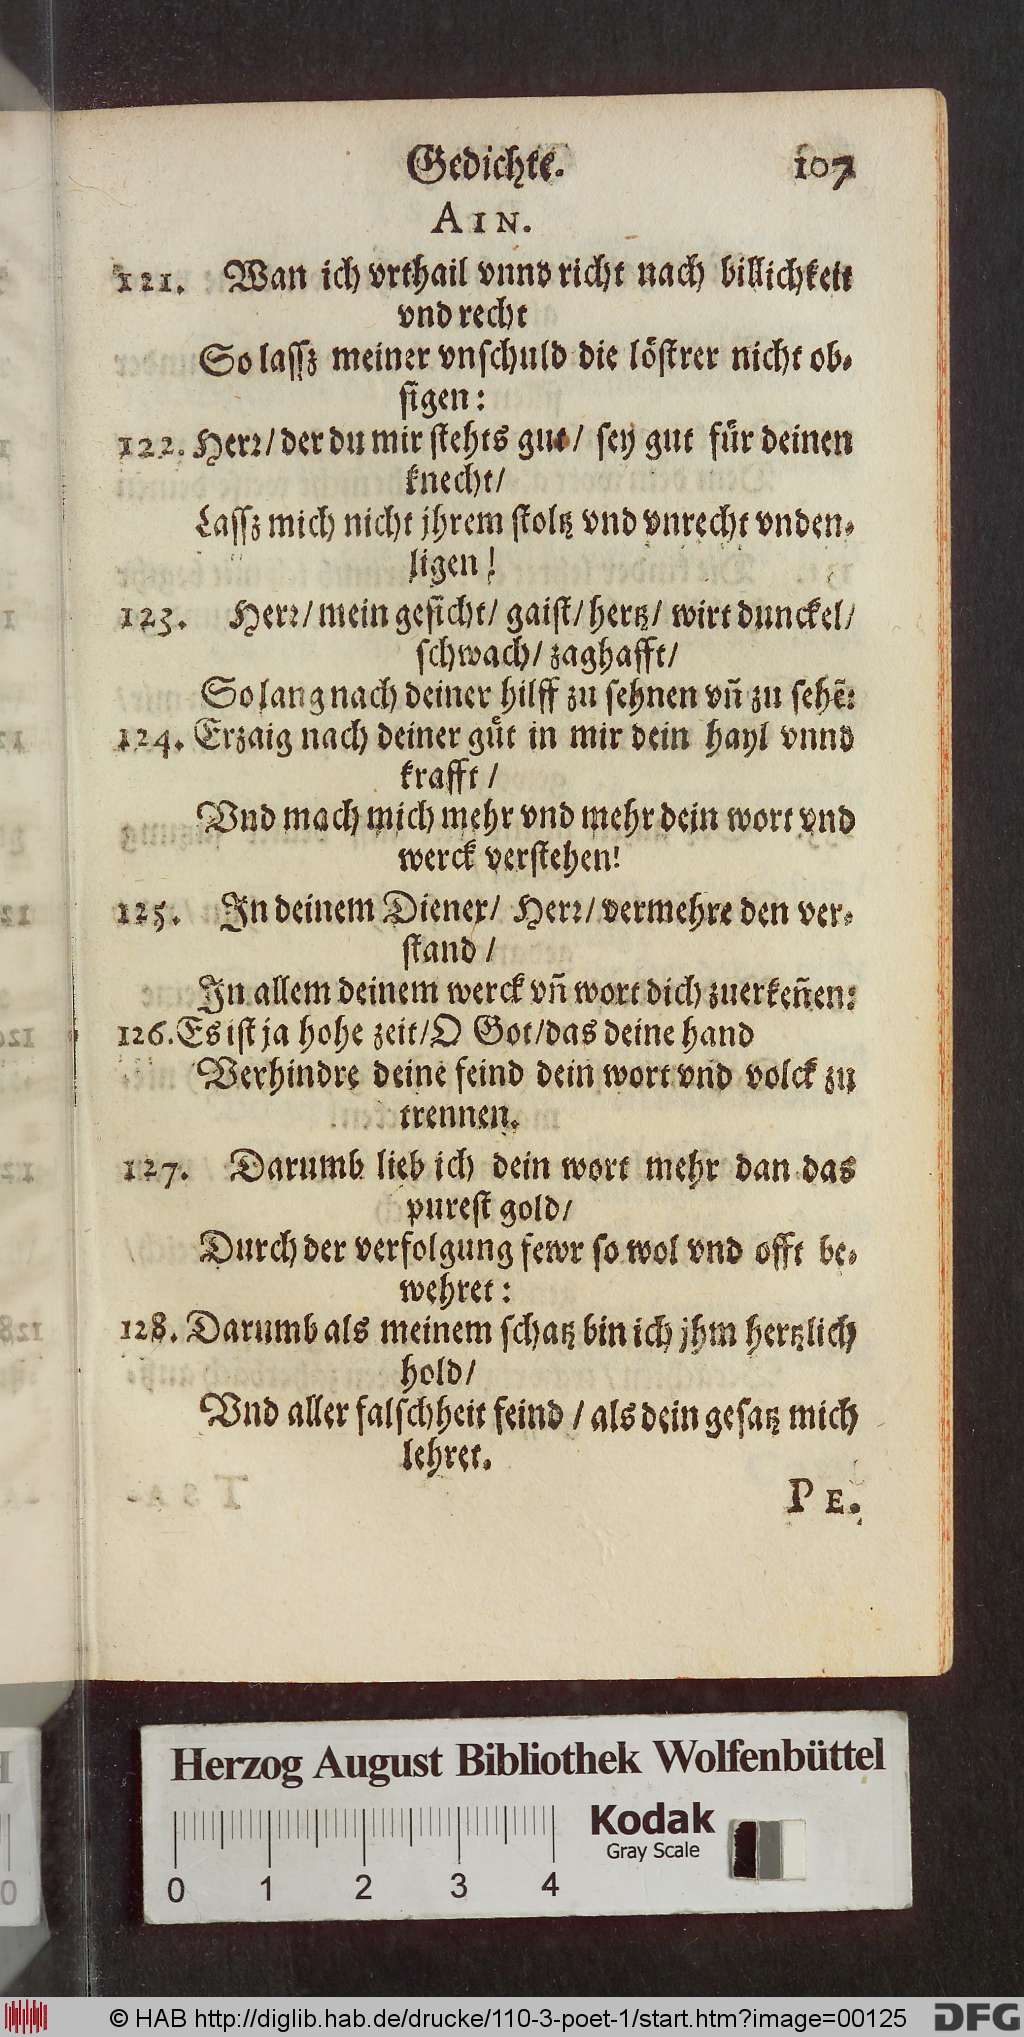 Gedichte. 107
AIN.
121. Wan ich vrthail vnnd richt nach billichkeit
vnd recht
So lassz meiner vnschuld die löstrer nicht ob-
sigen:
122. Herr/ der du mir stehts gut/ sey gut für deinen
knecht/
Lassz mich nicht jhrem stoltz vnd vnrecht vnden-
ligen!
123. Herr/ mein gesicht/ gaist/ hertz/ wirt dunckel/
schwach/ zaghafft/
So lang nach deiner hilff zu sehnen vñ zu sehẽ:
124. Erzaig nach deiner güt in mir dein hayl vnnd
krafft/
Vnd mach mich mehr vnd mehr dein wort vnd
werck verstehen!
125. In deinem Diener/ Herr/ vermehre den ver-
stand/
In allem deinem werck vñ wort dich zuerkeñen:
126. Es ist ja hohe zeit/ O Got/ das deine hand
Verhindre deine feind dein wort vnd volck zu
trennen.
127. Darumb lieb ich dein wort mehr dan das
purest gold/
Durch der verfolgung fewr so wol vnd offt be-
wehret:
128. Darumb als meinem schatz bin ich jhm hertzlich
hold/
Vnd aller falschheit feind / als dein gesatz mich
lehret.
PE.
Herzog August Bibliothek Wolfenbüttel
Kodak
Gray Scale
0 1 2 3 4
© HAB http://diglib.hab.de/drucke/110-3-poet-1/start.htm?image=00125
DFG